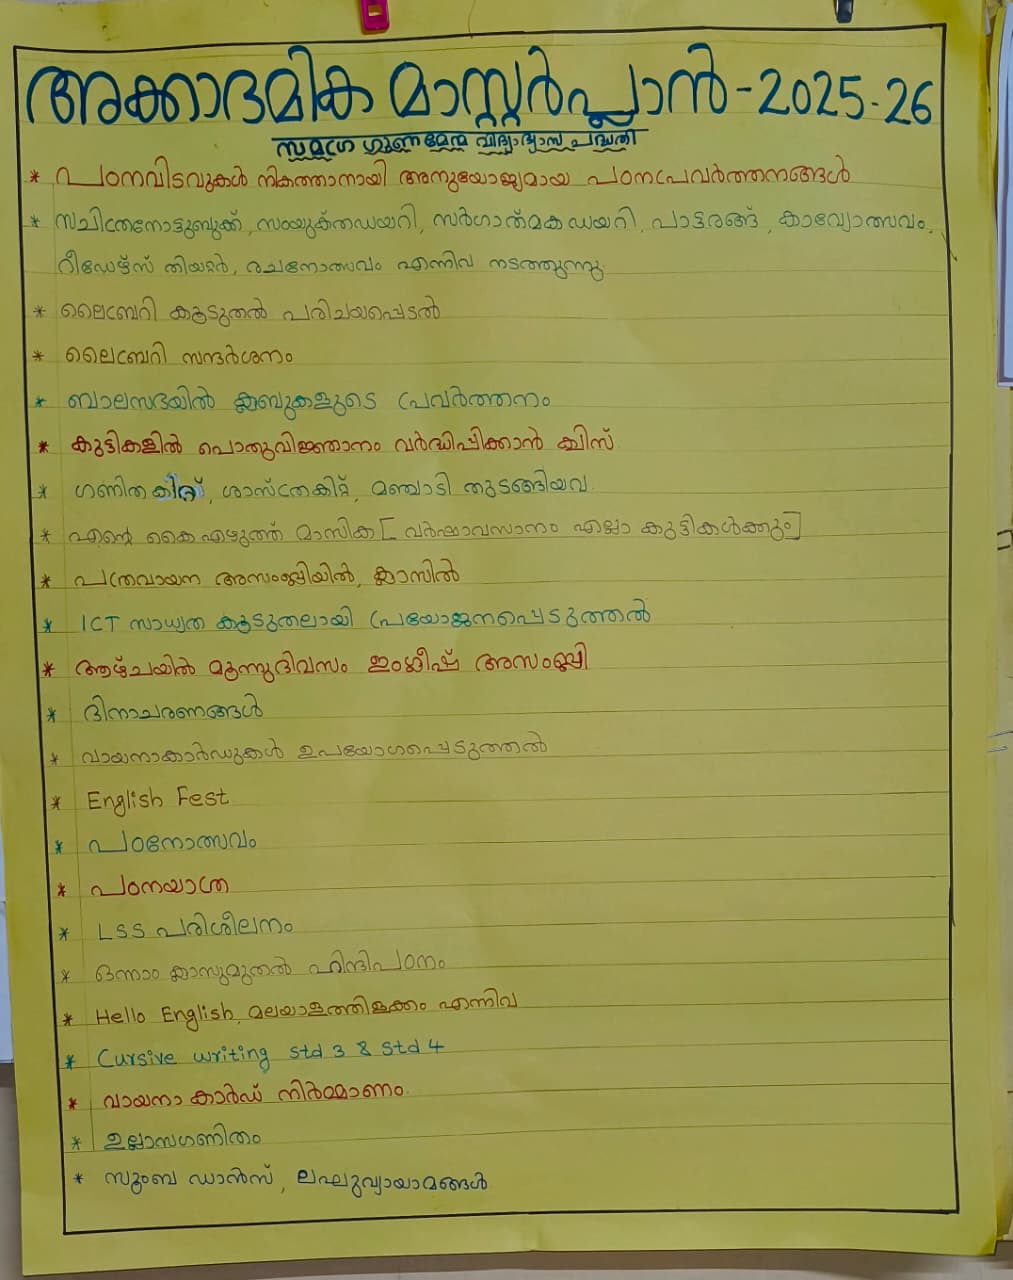 അക്കാദമിക മാസ്റ്റർപ്ലാൻ - 2025-26
സമഗ്ര ഗുണമേന്മ വിദ്യാഭ്യാസ പദ്ധതി
* പഠനവിടവുകൾ നികത്താനായി അനുയോജ്യമായ പഠനപ്രവർത്തനങ്ങൾ
* സചിത്രനോട്ടുബുക്ക്, സംയുക്തഡയറി, സർഗാത്മകഡയറി, പാട്ടരങ്ങ്, കാവ്യോത്സവം,
റീഡേഴ്സ് തിയറ്റർ, രചനോത്സവം എന്നിവ നടത്തുന്നു.
* ലൈബ്രറി കൂടുതൽ പരിചയപ്പെടൽ
* ലൈബ്രറി സന്ദർശനം
* ബാലസഭയിൽ ക്ലബുകളുടെ പ്രവർത്തനം
* കുട്ടികളിൽ പൊതുവിജ്ഞാനം വർദ്ധിപ്പിക്കാൻ ക്വിസ്
* ഗണിത കിറ്റ്, ശാസ്ത്രകിറ്റ്, മഞ്ചാടി തുടങ്ങിയവ
* എന്റെ കൈഎഴുത്ത് മാസിക [ വർഷാവസാനം എല്ലാ കുട്ടികൾക്കും]
* പത്രവായന അസംബ്ലിയിൽ, ക്ലാസിൽ
* ICT സാധ്യത കൂടുതലായി പ്രയോജനപ്പെടുത്തൽ
* ആഴ്ചയിൽ മൂന്നുദിവസം ഇംഗ്ലീഷ് അസംബ്ലി
* ദിനാചരണങ്ങൾ
* വായനാകാർഡുകൾ ഉപയോഗപ്പെടുത്തൽ
* English Fest
* പഠനോത്സവം
* പഠനയാത്ര
* LSS പരിശീലനം
* ഒന്നാം ക്ലാസുമുതൽ ഹിന്ദിപഠനം
* Hello English, മലയാളത്തിളക്കം എന്നിവ
* Cursive writing std 3 & std 4
* വായനാ കാർഡ് നിർമ്മാണം
* ഉല്ലാസഗണിതം
* സൂംബ ഡാൻസ്, ലഘുവ്യായാമങ്ങൾ